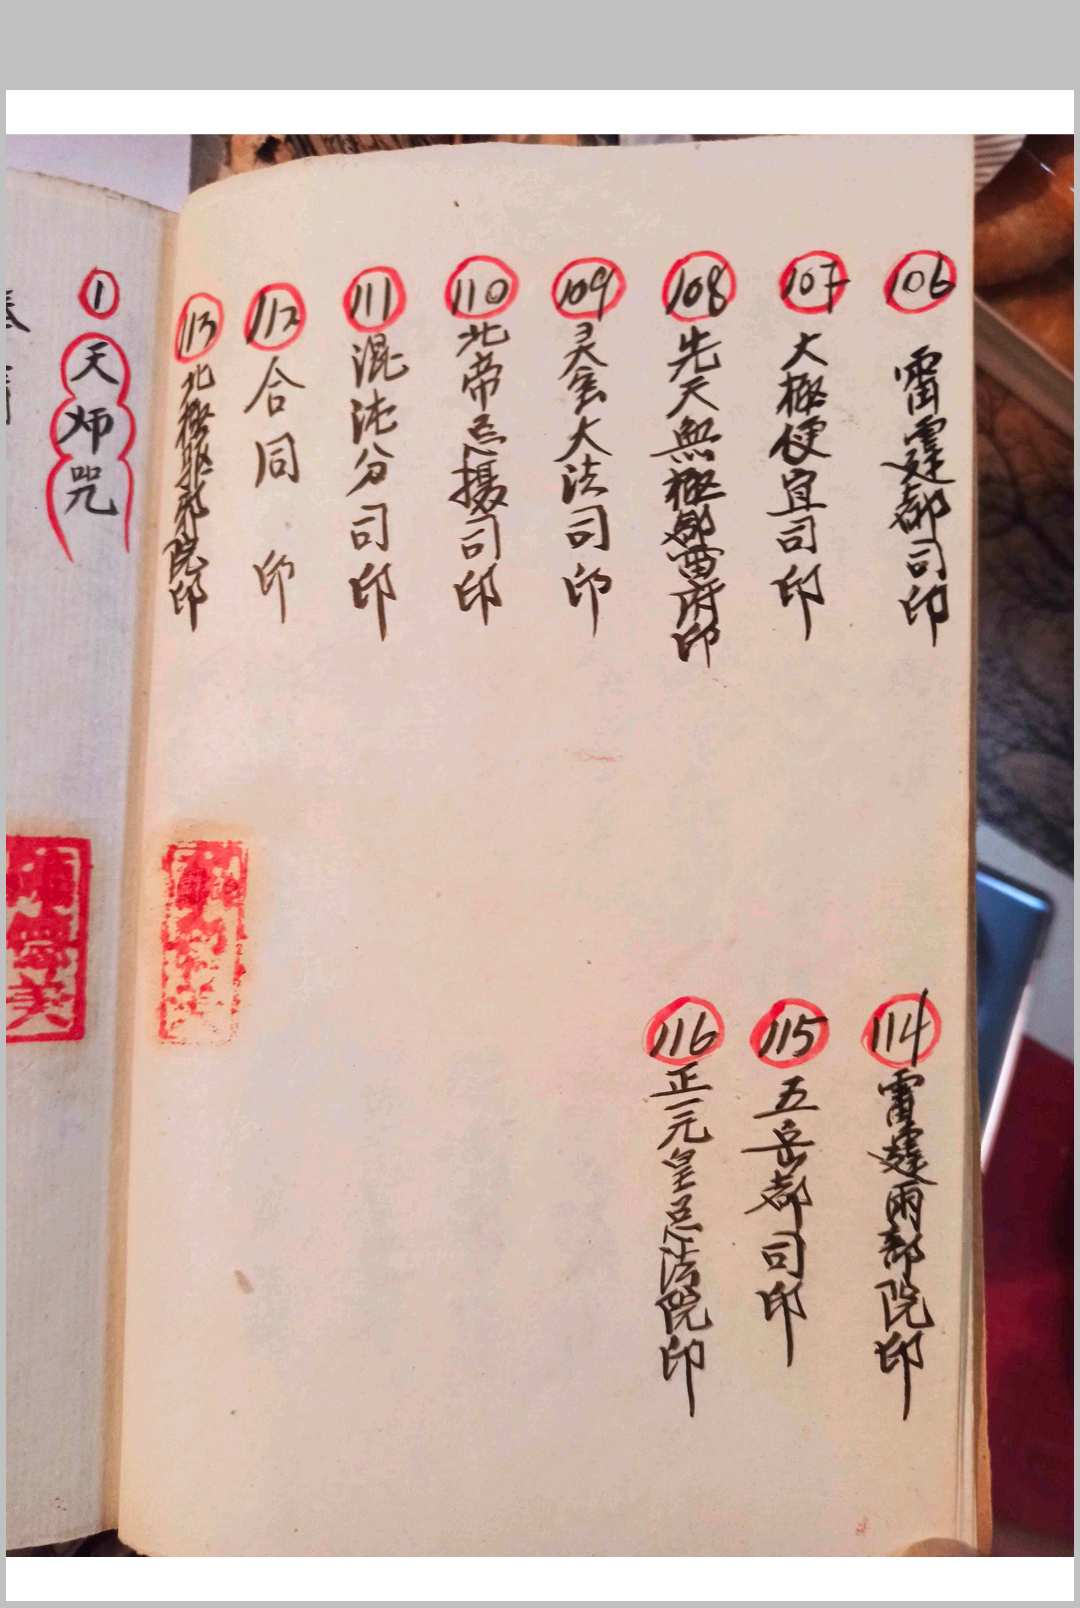 106 雷霆都司印
107 大極便宜司印
108 先天無極都雷府印
109 灵宝大法司印
110 北帝总摄司印
111 混沌分司印
112 合同印
113 北極驱邪院印
114 雷霆兩部院印
115 五岳都司印
116 正一元皇总法院印
1 天师咒
美